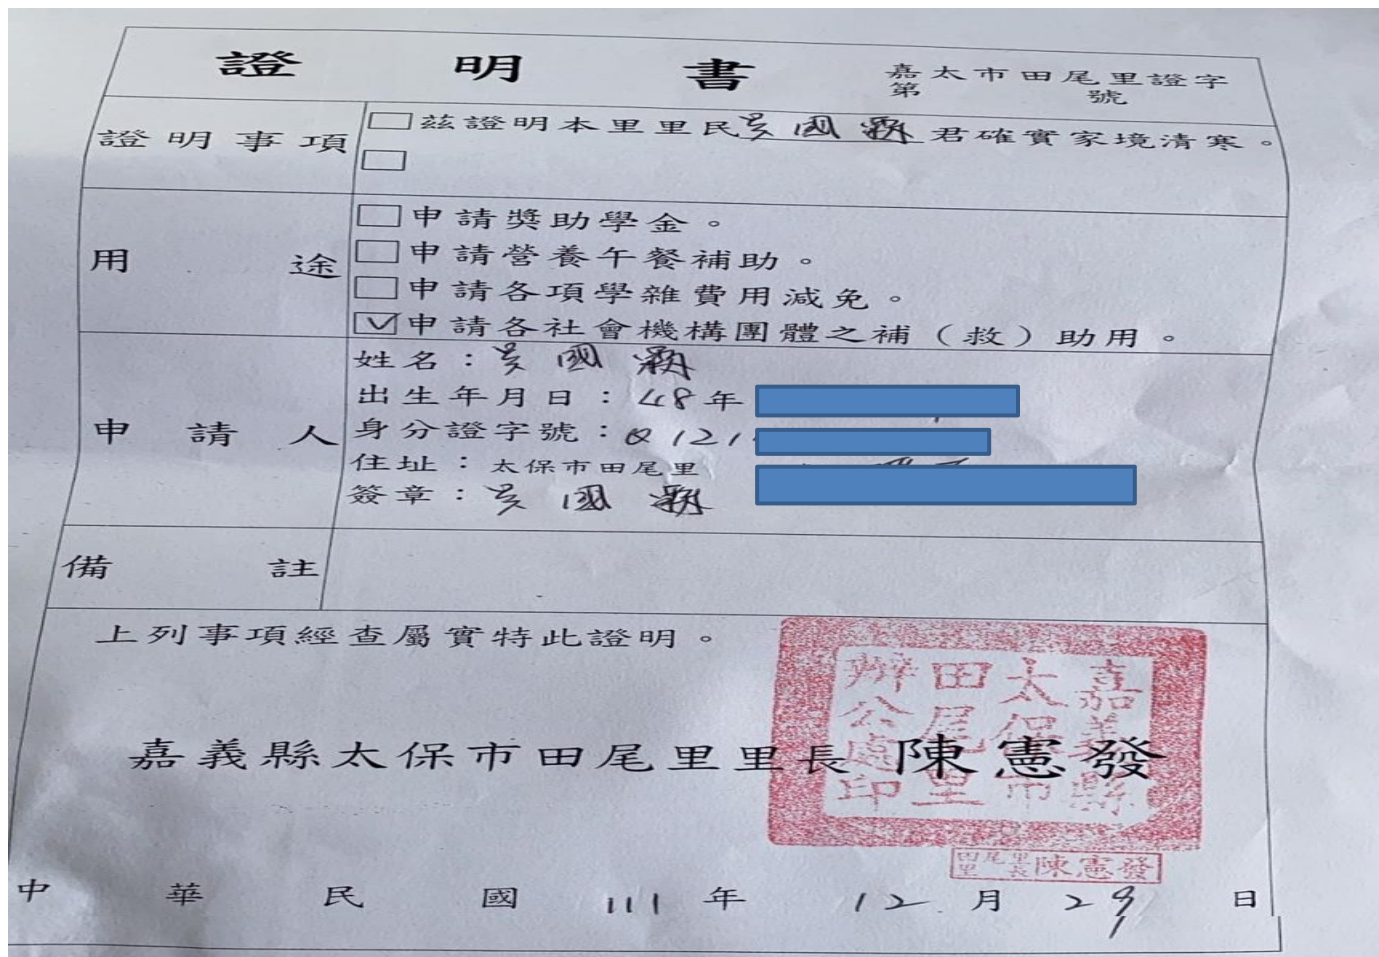 證明書
嘉太市田尾里證字
第 號
證明事項
□茲證明本里里民吳國霸君確實家境清寒。
□
用途
□申請獎助學金。
□申請營養午餐補助。
□申請各項學雜費用減免。
☑申請各社會機構團體之補（救）助用。
申請人
姓名：吳國霸
出生年月日：48年
身分證字號：Q121
住址：太保市田尾里
簽章：吳國霸
備註
上列事項經查屬實特此證明。
嘉義縣太保市田尾里里長 陳憲發
嘉義縣
太保市
田尾里
辦公處印
田尾里里長陳憲發
中華民國111年12月29日